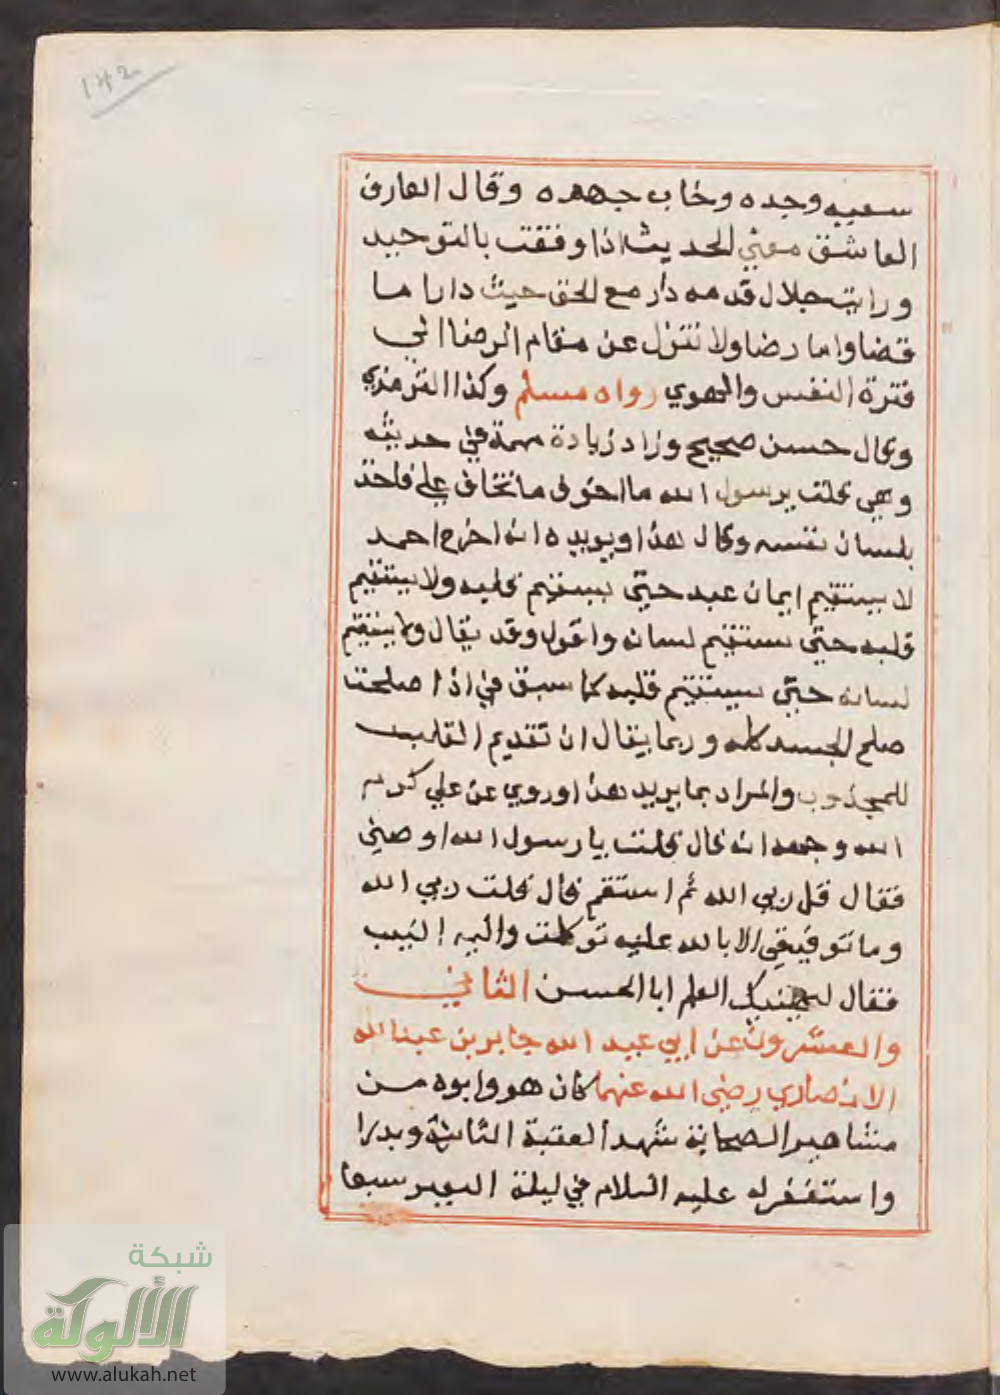 ١٤٢
سعيه وجده وخاب جهده وقال العارف
العاشق معنى الحديث اذا وفقت بالتوحيد
ورايت جلال قدمه دار مع الحق حيث دار اما
قضا واما رضا ولا تنزل عن مقام الرضا الي
فترة النفس والهوي رواه مسلم وكذا الترمذي
وقال حسن صحيح وزاد زيادة مهمة في حديثه
وهي قلت يرسول الله ما اخوف ما تخاف علي فاخذ
بلسان نفسه وقال هذا ويويده انه اخرج احمد
لا يستقيم ايمان عبد حتي يستقيم قلبه ولا يستقيم
قلبه حتي يستقيم لسانه واقول وقد يقال ولا يستقيم
لسانه حتي يستقيم قلبه كما سبق في اذا صلحت
صلح الجسد كله وربما يقال ان تقديم القلب
للمجذوب والمراد بما يريد هذا وروي عن علي كرم
الله وجهه انه قال قلت يا رسول الله اوصني
فقال قل ربي الله ثم استقم قال قلت ربي الله
وما توفيقي الا بالله عليه توكلت واليه انيب
فقال ليهنيك العلم ابا الحسن الثاني
والعشرون عن ابي عبد الله جابر بن عبد الله
الانصاري رضي الله عنهما كان هو وابوه من
مشاهير الصحابة شهد العقبة الثانية وبدرا
واستغفر له عليه السلام في ليلة البعير سبعا
شبكة
الألوكة
www.alukah.net